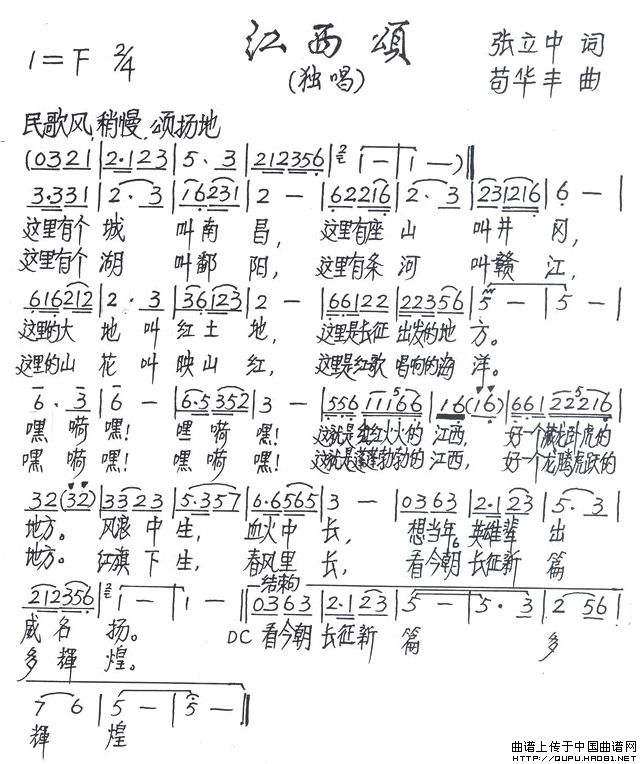 江西颂
(独唱)
1=F 2/4
张立中 词
苟华丰 曲
民歌风,稍慢,颂扬地
(0321|2·123|5·3|212356|1-|1-)‖
3·331|2·3|16231|2-|62216|2·3|231216|6-|
这里有个 城 叫南 昌, 这里有座 山 叫井 冈,
这里有个 湖 叫鄱 阳, 这里有条 河 叫赣 江,
616212|2·3|36123|2-|66122|22356|5-|5-|
这里的大 地 叫 红土 地, 这里是长征 出发的地 方。
这里的山 花 叫 映山 红, 这里是红歌 唱响的海 洋。
6·3|6-|6·5352|3-|556 111665|16(16)|661 225216|
嘿 嗬 嘿! 嘿 嗬 嘿! 这就是红红火火的 江西, 好一个藏龙卧虎的
嘿 嗬 嘿! 嘿 嗬 嘿! 这就是蓬蓬勃勃的 江西, 好一个龙腾虎跃的
32(32)|3323|5·357|6·6565|3-|0363|2·123|5·3|
地方。 风浪 中 生, 血火中 长, 想当年 英雄辈 出
地方。 红旗 下 生, 春风里 长, 看今朝 长征新 篇
结束句
212356|1-|1-‖0363|2·123|5-|5·3|2 56|
威名 扬。 DC 看今朝 长征新 篇 多
多辉 煌。
7 6|5-|5-‖
辉 煌
曲谱上传于中国曲谱网
HTTP://QUPU.HAO81.NET